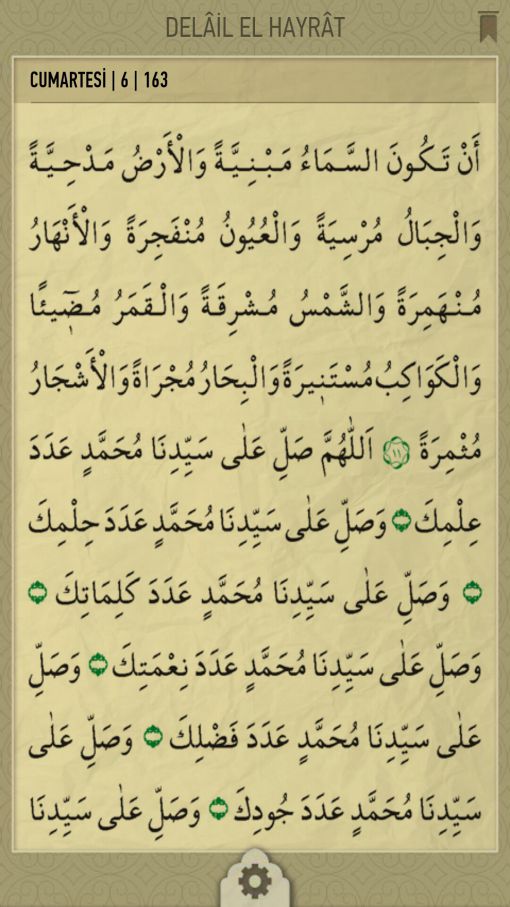 DELÂİL EL HAYRÂT
CUMARTESİ | 6 | 163
أَنْ تَكُونَ السَّمَاءُ مَبْنِيَّةً وَالْأَرْضُ مَدْحِيَّةً
وَالْجِبَالُ مُرْسِيَةً وَالْعُيُونُ مُنْفَجِرَةً وَالْأَنْهَارُ
مُنْهَمِرَةً وَالشَّمْسُ مُشْرِقَةً وَالْقَمَرُ مُضِٓيئًا
وَالْكَوَاكِبُ مُسْتَنِيرَةً وَالْبِحَارُ مُجْرَاةً وَالْأَشْجَارُ
مُثْمِرَةً ١١ اَللّٰهُمَّ صَلِّ عَلٰى سَيِّدِنَا مُحَمَّدٍ عَدَدَ
عِلْمِكَ وَصَلِّ عَلٰى سَيِّدِنَا مُحَمَّدٍ عَدَدَ حِلْمِكَ
وَصَلِّ عَلٰى سَيِّدِنَا مُحَمَّدٍ عَدَدَ كَلِمَاتِكَ
وَصَلِّ عَلٰى سَيِّدِنَا مُحَمَّدٍ عَدَدَ نِعْمَتِكَ وَصَلِّ
عَلٰى سَيِّدِنَا مُحَمَّدٍ عَدَدَ فَضْلِكَ وَصَلِّ عَلٰى
سَيِّدِنَا مُحَمَّدٍ عَدَدَ جُودِكَ وَصَلِّ عَلٰى سَيِّدِنَا